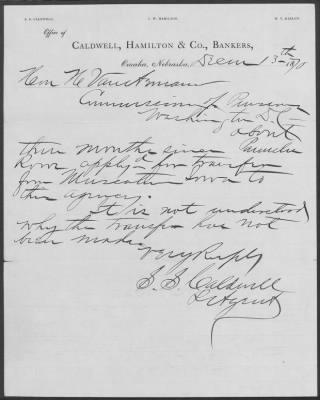 S. S. CALDWELL. C. W. HAMILTON. M. T. BARLOW.
Office of
CALDWELL, HAMILTON & CO., BANKERS,
Omaha, Nebraska, Decem 13th 1870
Hon H Van Aernam
Commissioner of Pensions
Washington D. C.
About
three months since Pamelia
Rowe applyd for transfer
from Muscatine Iowa to
this agency.
It is not understood
why the transfer has not
been made
Very Respfly
S. S. Caldwell
Agent